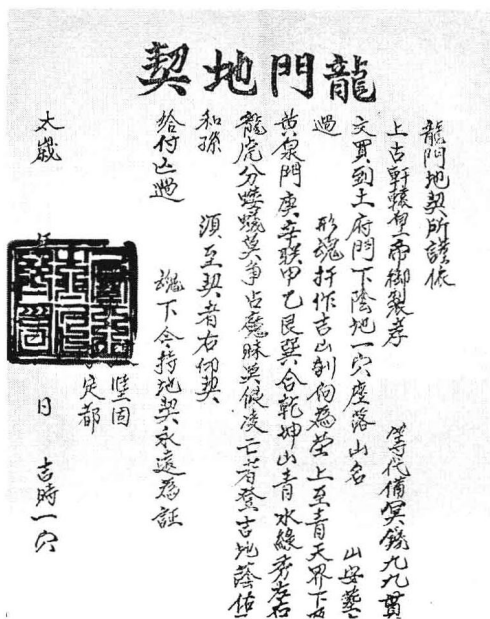 龍門地契
龍門地契所謹依
上古軒轅皇帝御製孝 等代備冥錢九九貫
文買到土府門下陰地一穴座落山名 山安葬
過 形魂扦作吉山 向為塋上至青天界下
黃泉門庚辛联甲乙艮巽合乾坤山青水綠秀左右
龍虎分 蟻莫争占魔昧莫侵凌亡者登吉地蔭佑
和孫 須至契者右仰契
給付亡過 魂下令持地契永遠為証
堅固
定都
太歲 日 吉時一穴